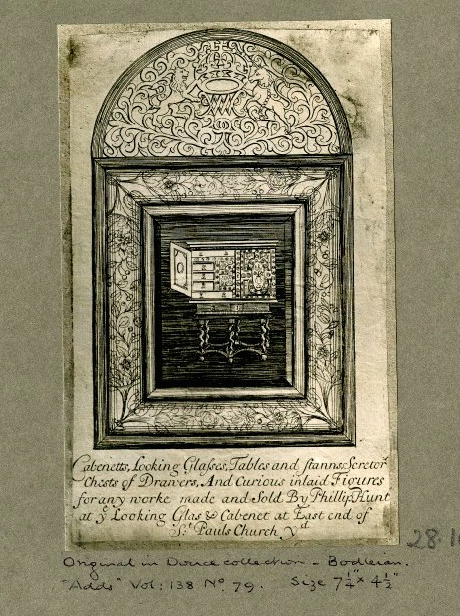 Cabenetts, Looking Glasses, Tables and stanns, Scretor's
Chests of Drawers, And Curious inlaid Figures
for any worke made and Sold By Phillip Hunt
at yᵉ Looking Glas & Cabenet at East end of
Sᵗ Pauls Church yᵈ
28.10
Original in Douce collection - Bodleian.
"Adds" Vol: 138 Nº 79. Size 7¼" x 4½"